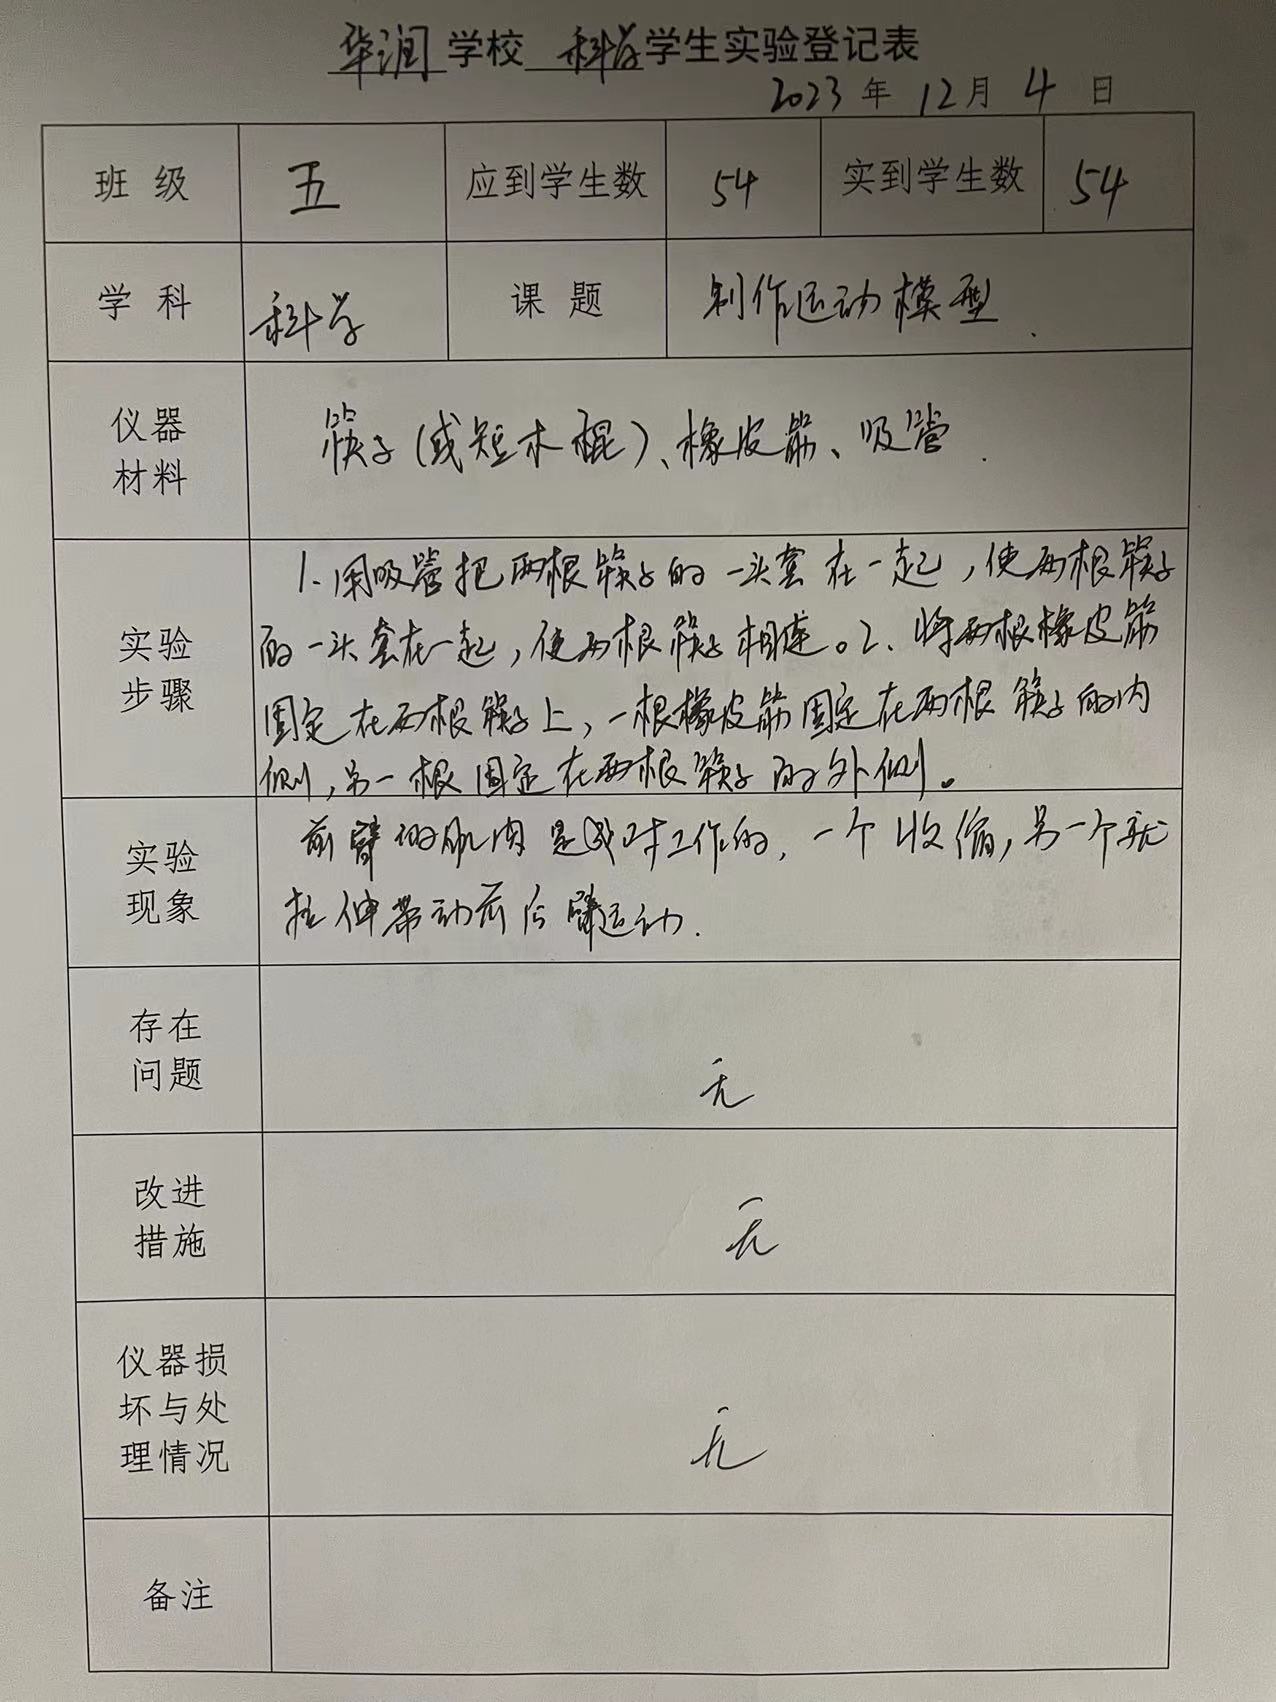 华润学校 科学学生实验登记表
2023年 12月 4 日
班 级 五 应到学生数 54 实到学生数 54
学 科 科学 课 题 制作运动模型.
仪器
材料
筷子(或短木棍)、橡皮筋、吸管.
实验
步骤
1.用吸管把两根筷子的一头套在一起,使两根筷子
的一头套在一起,使两根筷子相连。2.将两根橡皮筋
固定在两根筷子上,一根橡皮筋固定在两根筷子的内
侧,另一根固定在两根筷子的外侧。
实验
现象
前臂的肌肉是成对工作的,一个收缩,另一个就
拉伸带动前后臂运动.
存在
问题
无
改进
措施
无
仪器损
坏与处
理情况
无
备注